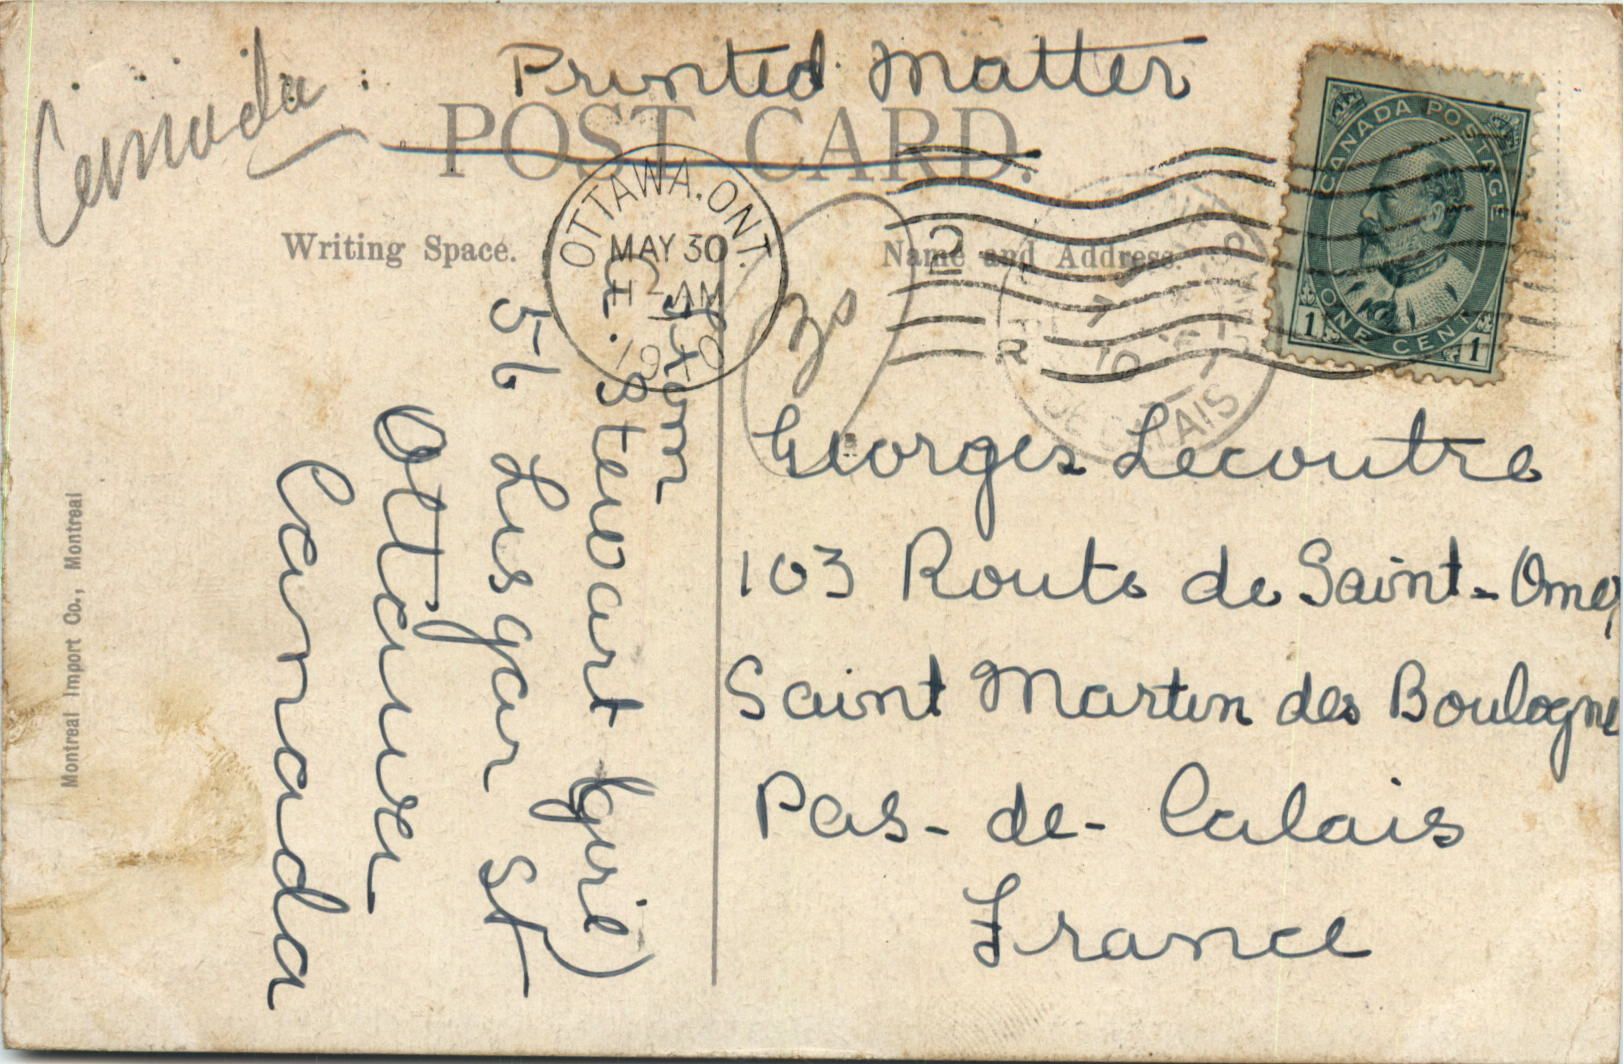 Canada
Printed Matter
POST CARD.
Writing Space.
Name and Address.
OTTAWA. ONT.
MAY 30
11 - AM
1910
2
30
CANADA POSTAGE
ONE CENT
1 1
DE CALAIS
10
From
E. Stewart (girl)
56 Lisgar St
Ottawa
Canada
Georges Lecoutre
103 Route de Saint-Omer
Saint Martin des Boulogne
Pas-de-Calais
France
Montreal Import Co., Montreal